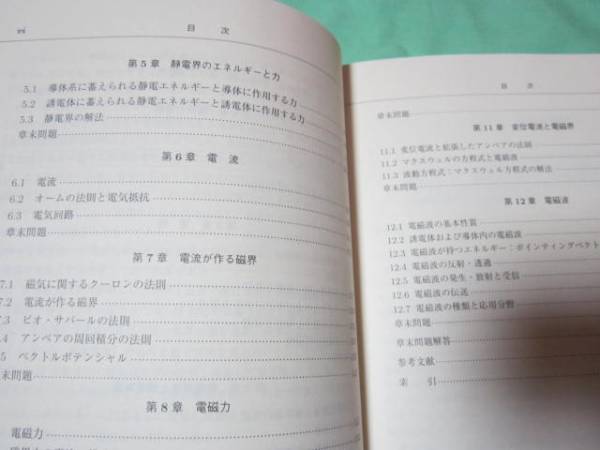 目　次
第5章　静電界のエネルギーと力
5.1　導体系に蓄えられる静電エネルギーと導体に作用する力
5.2　誘電体に蓄えられる静電エネルギーと誘電体に作用する力
5.3　静電界の解法
章末問題
第6章　電　流
6.1　電流
6.2　オームの法則と電気抵抗
6.3　電気回路
章末問題
第7章　電流が作る磁界
7.1　磁気に関するクーロンの法則
7.2　電流が作る磁界
7.3　ビオ・サバールの法則
.4　アンペアの周回積分の法則
5　ベクトルポテンシャル
末問題
第8章　電磁力
電磁力
目　次
章末問題
第11章　変位電流と電磁界
11.1　変位電流と拡張したアンペアの法則
11.2　マクスウェルの方程式と電磁波
11.3　波動方程式：マクスウェル方程式の解法
章末問題
第12章　電磁波
12.1　電磁波の基本性質
12.2　誘電体および導体内の電磁波
12.3　電磁波が持つエネルギー：ポインティングベクト
12.4　電磁波の反射・透過
12.5　電磁波の発生・放射と受信
12.6　電磁波の伝送
12.7　電磁波の種類と応用分野
章末問題
章末問題解答
参考文献
索　引